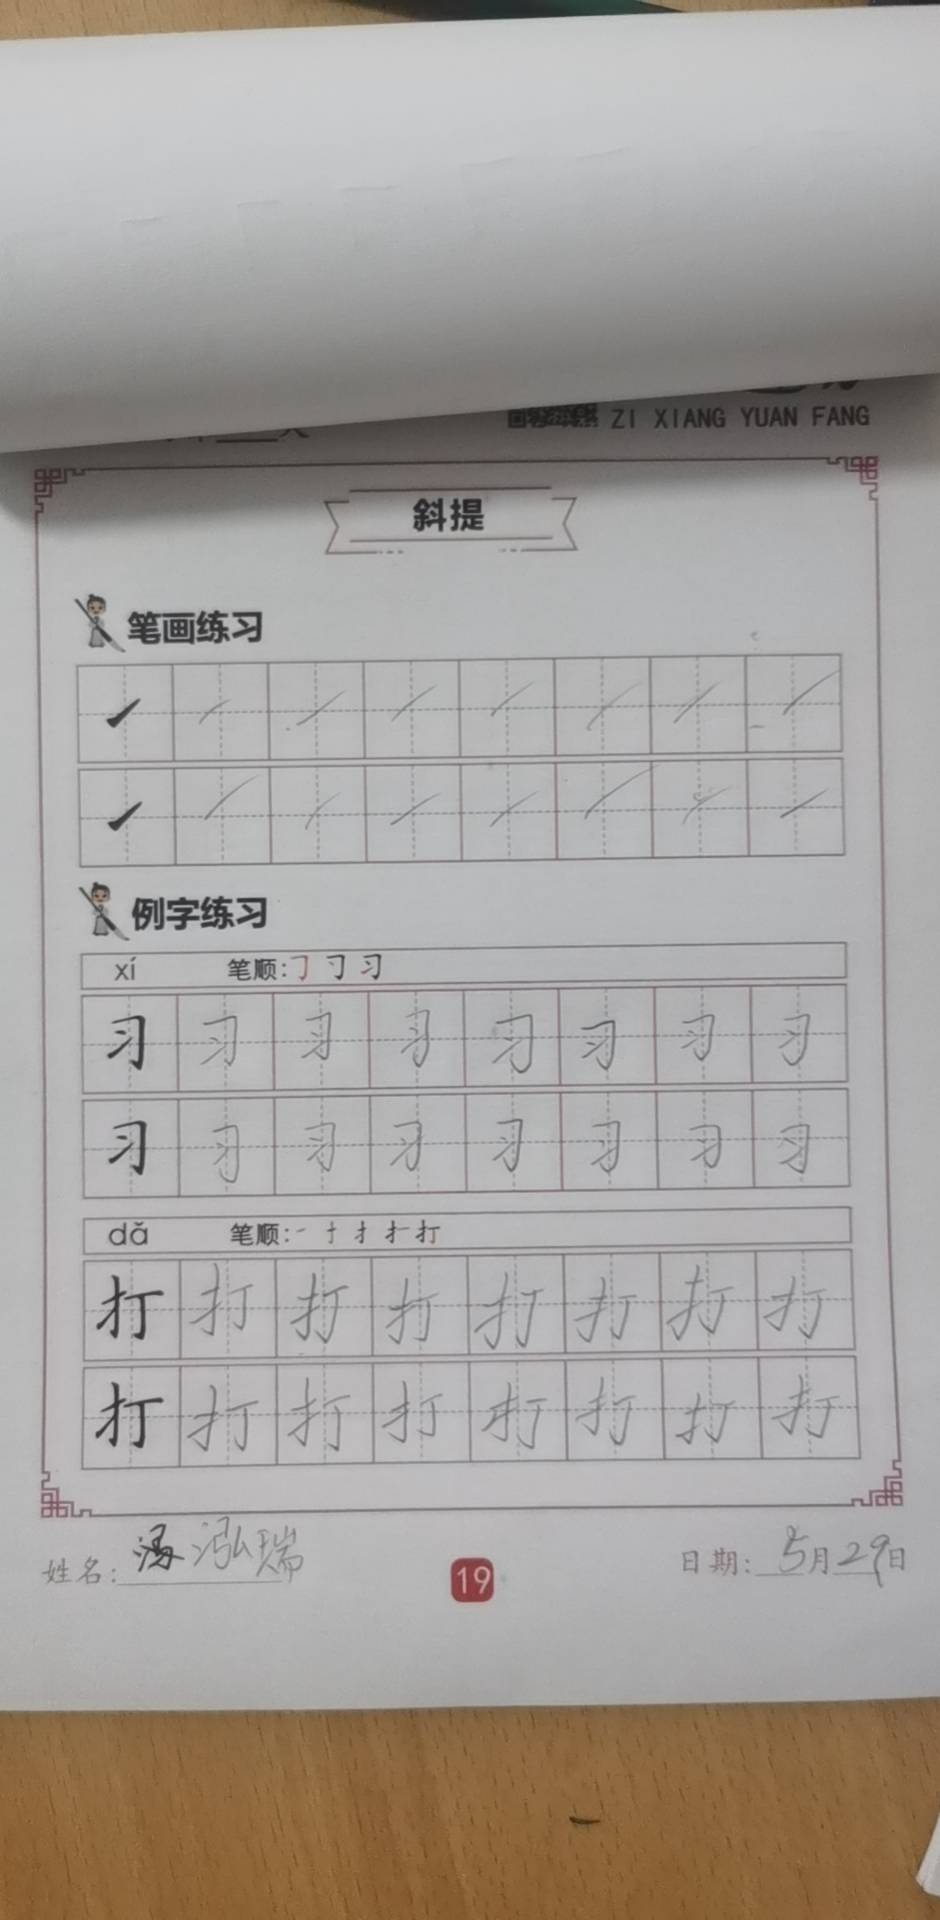 ZI XIANG YUAN FANG
斜提
笔画练习
例字练习
xí 笔顺:㇆ 习
习 习 习 习 习 习 习 习
习 习 习 习 习 习 习 习
dǎ 笔顺:一 十 扌 扩 打
打 打 打 打 打 打 打 打
打 打 打 打 打 打 打 打
姓名: 汤泓瑞 19 日期: 5月29日